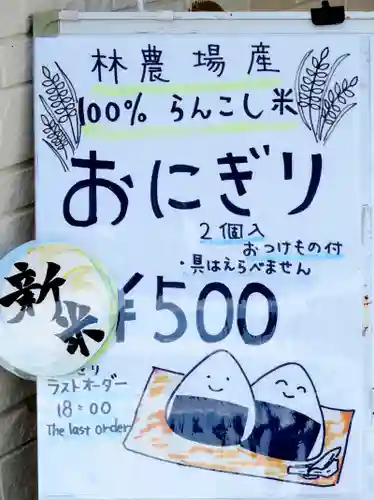 林農場産
100% らんこし米
おにぎり
2個入
おつけもの付
・具はえらべません
新米
¥500
ぎり
ラストオーダー
18:00
The last order